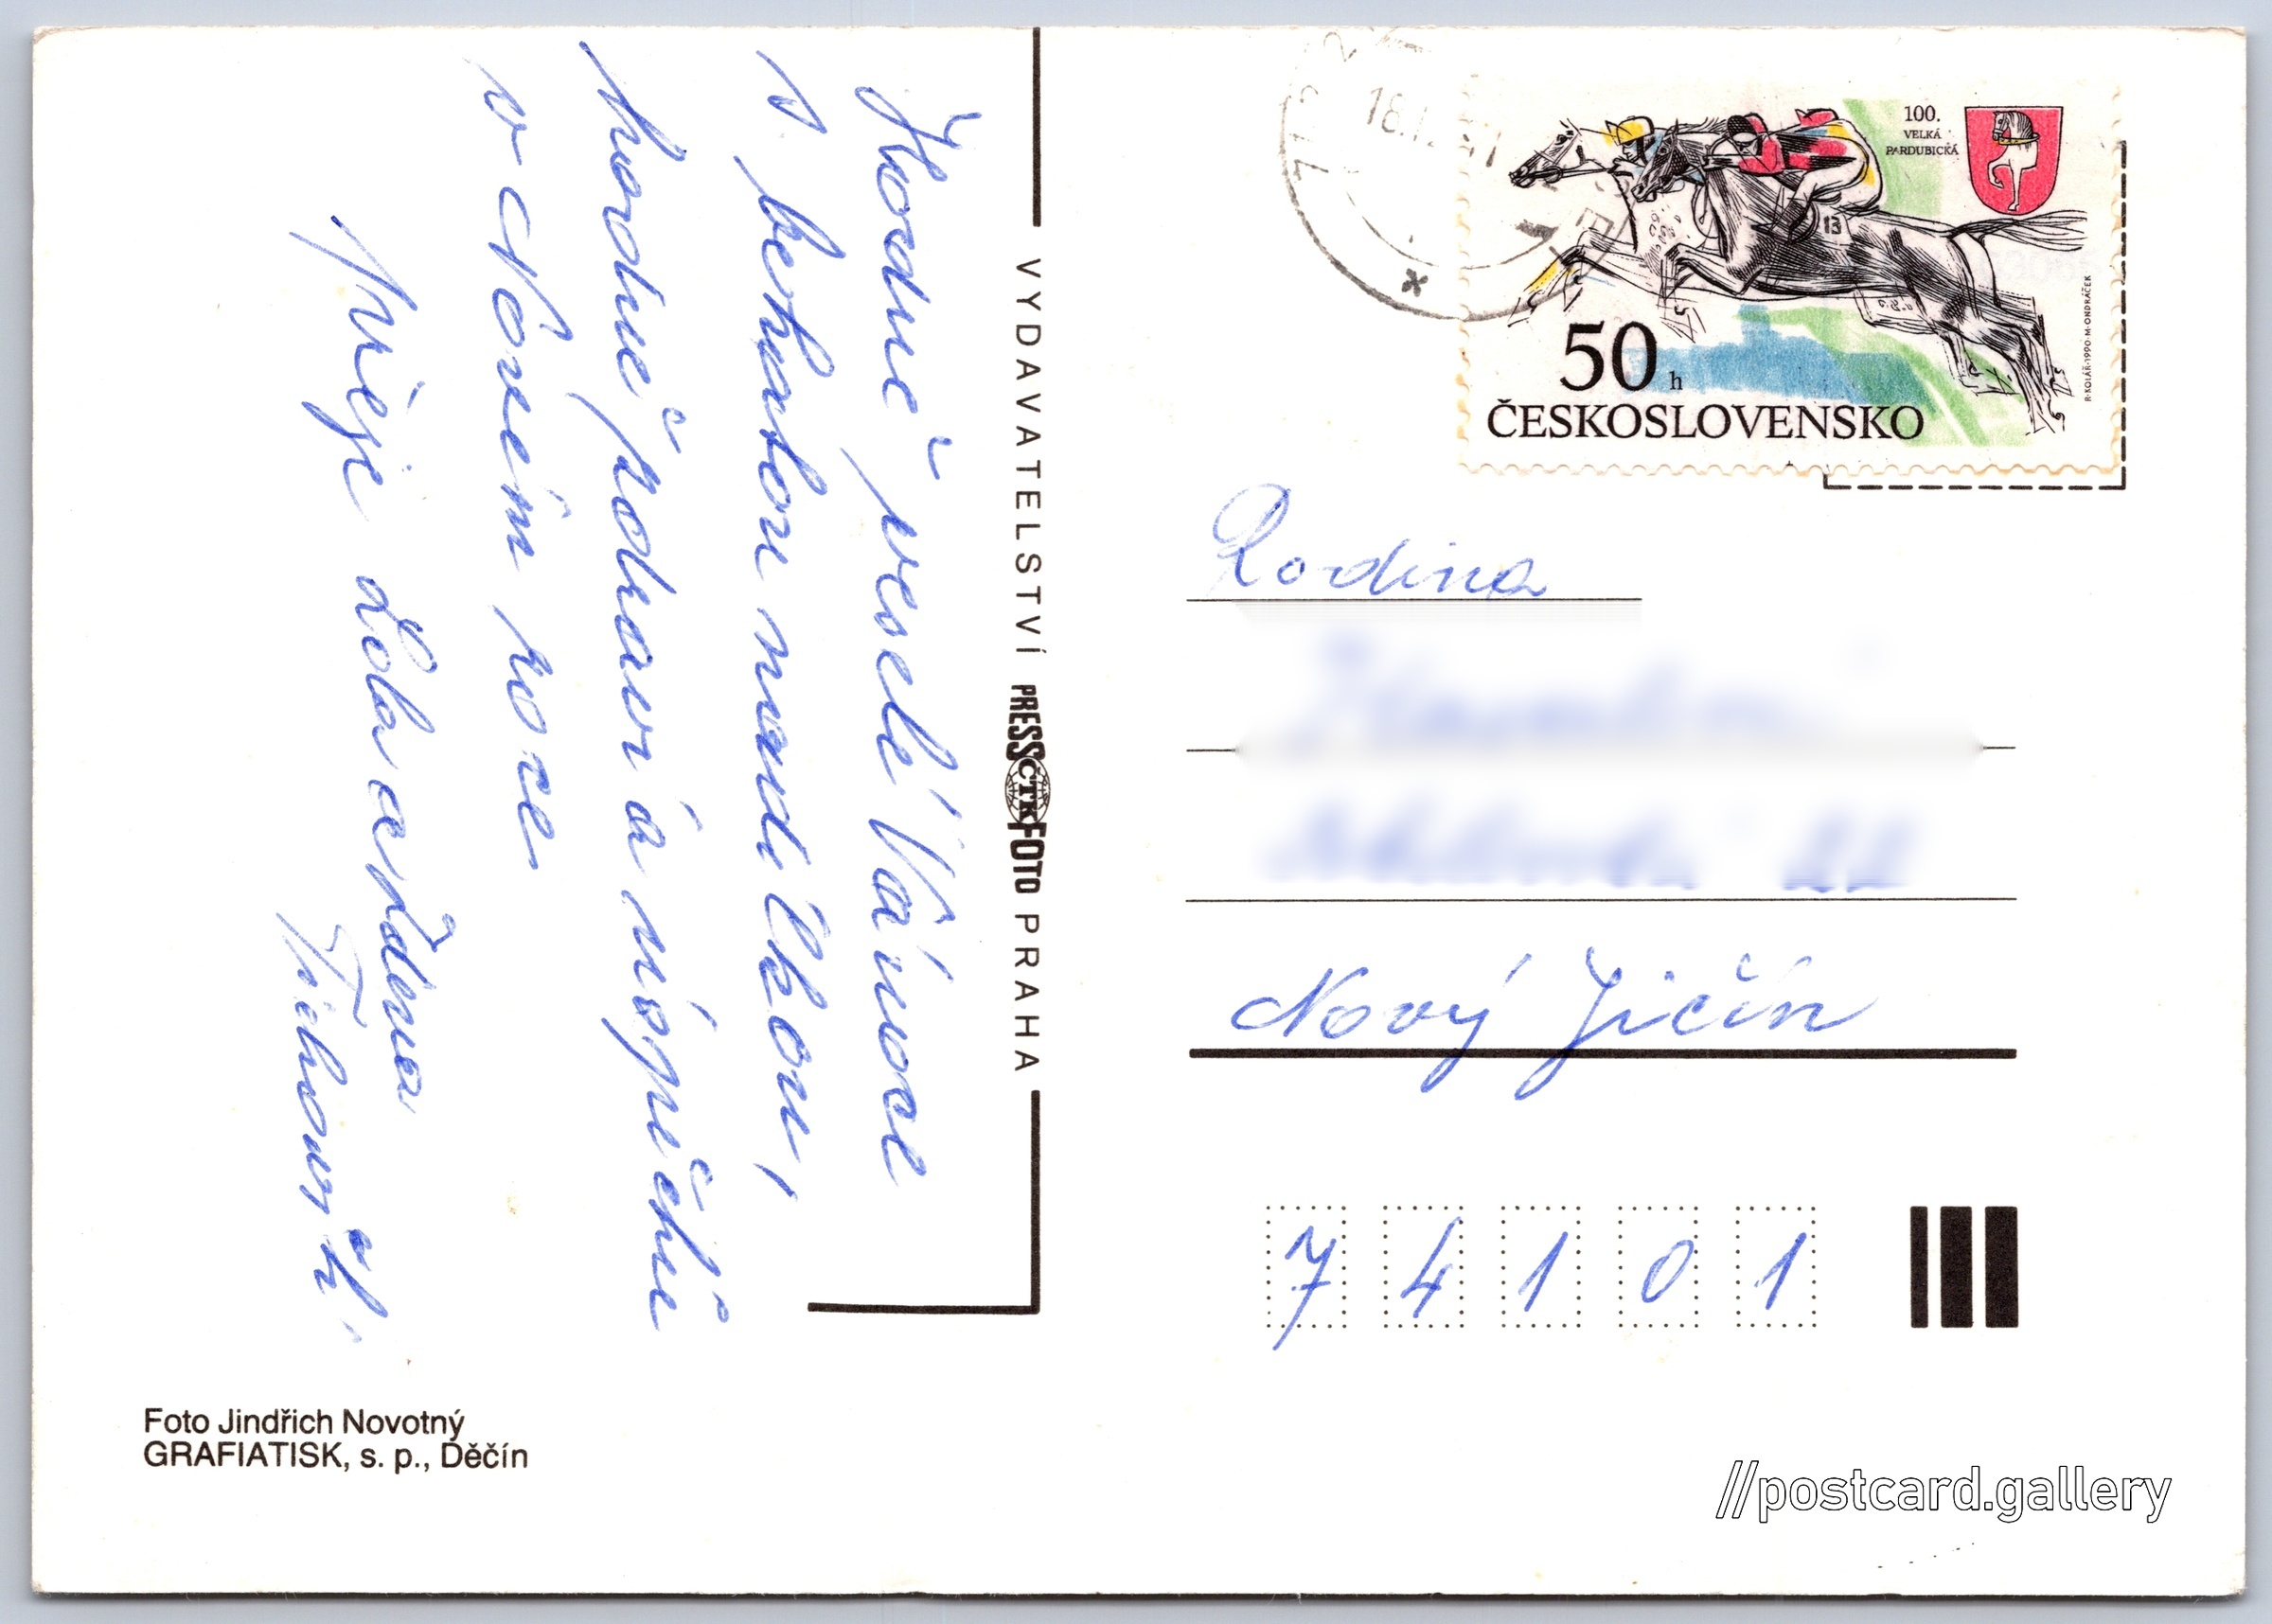 Hodně veselé Vánoce
s bohatou nadílkou,
hodně pohav a úspěchů
v celém roce
přeje Lola a Zdena
VYDAVATELSTVÍ PRESSFOTO ČTK PRAHA
Foto Jindřich Novotný
GRAFIATISK, s. p., Děčín
100.
VELKÁ
PARDUBICKÁ
13
50 h
ČESKOSLOVENSKO
R·KOLÁŘ·1990·M·ONDRÁČEK
Rodina
Nový Jičín
74101
//postcard.gallery